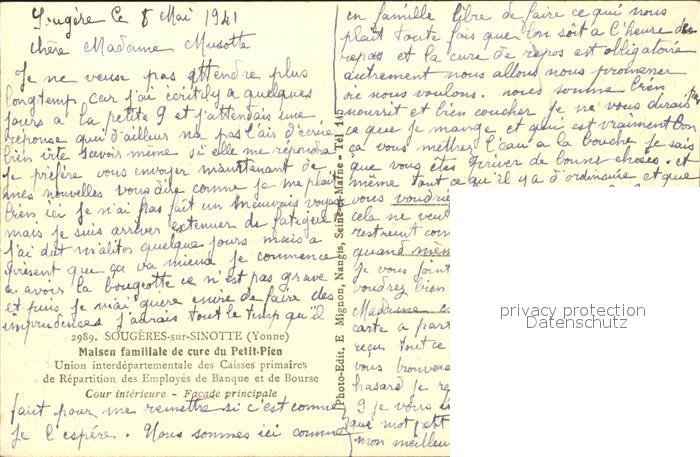 Sougère le 8 Mai 1941
chère Madame Musotte
Je ne veuse pas attendre plus
longtemp car j'ai écrit il y a quelques
jours a la petite G et j'attendais une
réponse qui d'ailleur na pas l'ais d'écrire
bien vite savoir même si elle me répondra
Je préfère vous envoyer maintenant de
mes nouvelles vous dire comme je me plait
bien ici Je n'ai pas fait un mauvais voyage
mais je suis arriver extenuer de fatigue
j'ai dut m'aliter quelque jours mais a
présent que ça va mieux je commence
a avoir la bougeotte ce n'est pas grave
et puis je n'ai guère envie de faire des
imprudences j'aurais tout le temp qu'il
2989. SOUGÈRES-sur-SINOTTE (Yonne)
Maison familiale de cure du Petit-Pien
Union interdépartementale des Caisses primaires
de Répartition des Employés de Banque et de Bourse
Cour intérieure - Façade principale
faut pour me remettre si c'est comme
je l'espére. Nous sommes ici comme
Photo-Edit, E Mignon, Nangis, Seine-et-Marne - Tél 145
en famille libre de faire ce qui nous
plait toute fois que l'on soit a l'heure des
repas et la cure de repos est obligatoire
autrement nous allons nous promener
ou nous voulons. nous somme bien
nourrit et bien coucher je ne vous dirais pas
ce que je mange et qui est vraiment bon
ça vous mettrez l'eau a la bouche je sais
que vous êtes priver de bonne choses. et
même tout ce qu'il y a d'ordinaire et que
vous voudrie
cela ne veut
restreint com
quand même
Je vous joint
voudrez bien
Madame
carte a part
reçu tout ce
vous trouvera
hasard je re
G je vous
que mot petit
mon meilleu
privacy protection
Datenschutz